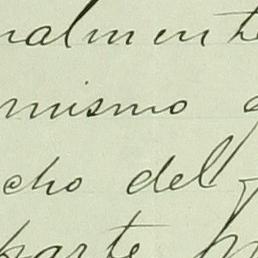 nalmente
mismo
cho del
parte